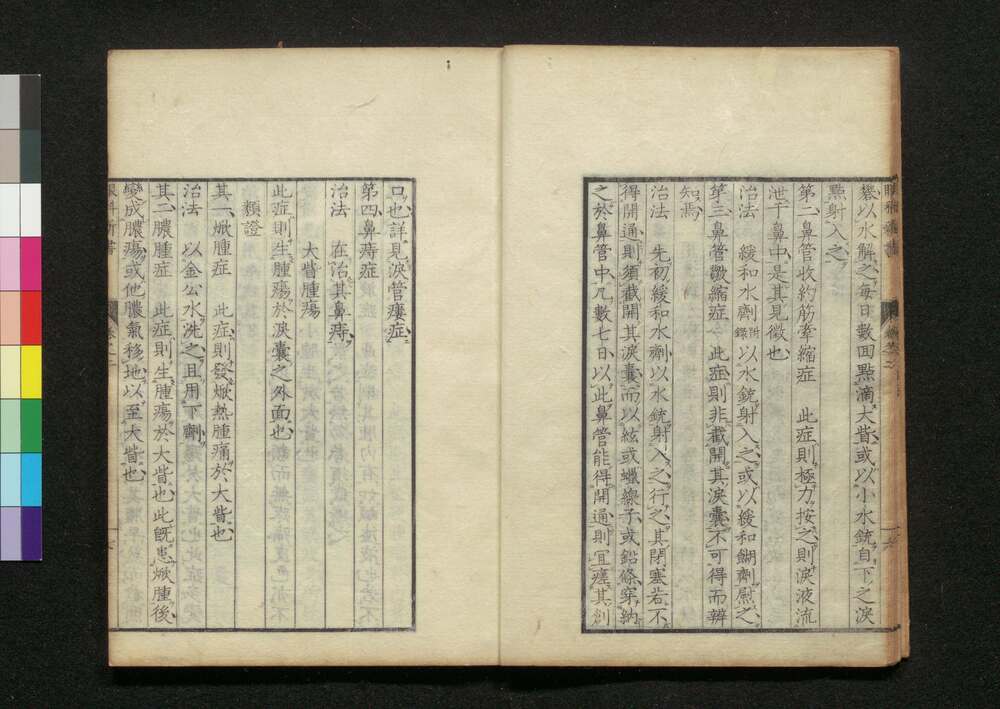 礬以水解之每日數回點滴大眥或以小水銃自下之淚
點射入之
第二鼻管收約筋牽縮症　此症則極力按之則淚液流
泄于鼻中是其見徵也
治法　緩和水劑附錄以水銃射入之或以緩和餬劑慰之
第三鼻管微縮症　此症則非截開其淚囊不可得而辨
知焉
治法　先初緩和水劑以水銃射入之行之其閉塞若不
得開通則須截開其淚囊而以絃或蠟線子或鉛條穿納
之於鼻管中凡數七日以此鼻管能得開通則宜瘥其創
口也詳見淚管瘻症
第四鼻痔症
治法　在治其鼻痔
大眥腫瘍
此症則生腫瘍於淚囊之外面也
類證
其一焮腫症　此症則發焮熱腫痛於大眥也
治法　以金公水洗之且用下劑
其二膿腫症　此症則生腫瘍於大眥也此既患焮腫後
變成膿瘍或他膿氣移地以至大眥也
眼科新書